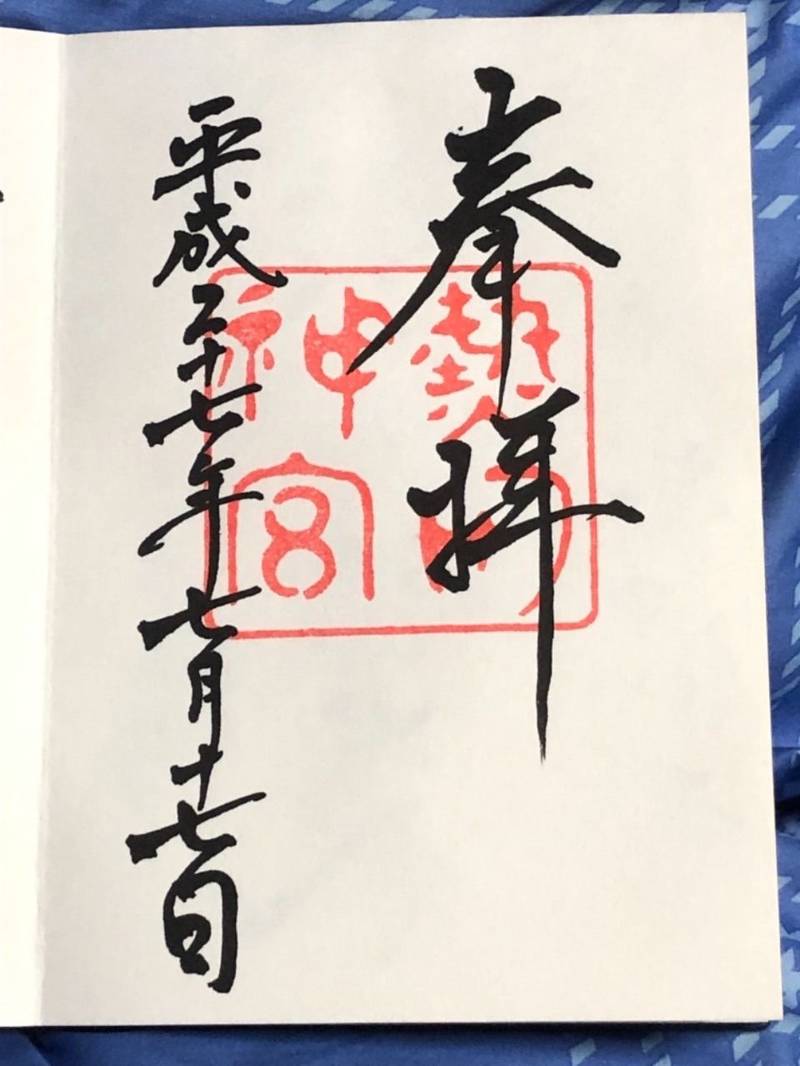 奉拝
熱田
神宮
平成二十七年七月十七日